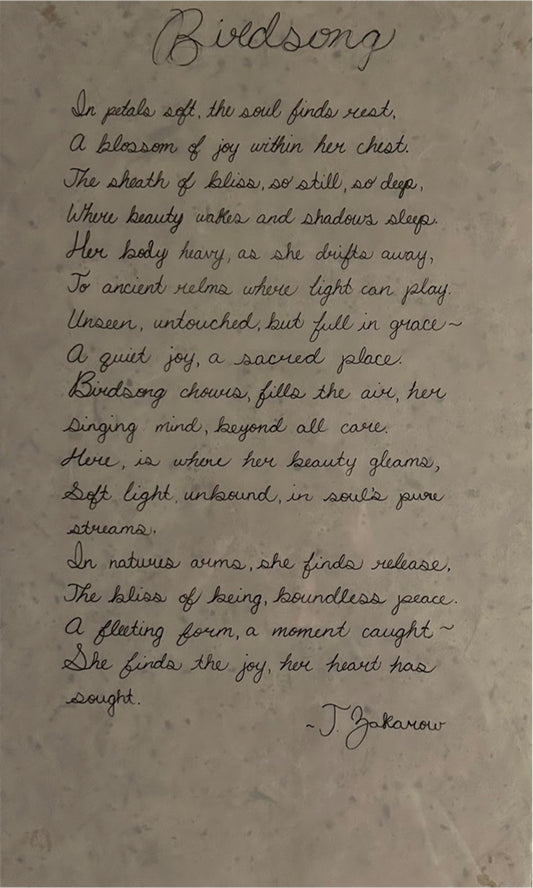 Birdsong
In petals soft, the soul finds rest,
A blossom of joy within her chest.
The sheath of bliss, so still, so deep,
Where beauty wakes and shadows sleep.
Her body heavy, as she drifts away,
To ancient relms where light can play.
Unseen, untouched, but full in grace~
A quiet joy, a sacred place.
Birdsong chours, fills the air, her
singing mind, beyond all care.
Here, is where her beauty gleams,
Soft light, unbound, in soul's pure
streams.
In natures arms, she finds release,
The bliss of being, boundless peace.
A fleeting form, a moment caught~
She finds the joy, her heart has
sought.
~J. Zakarow